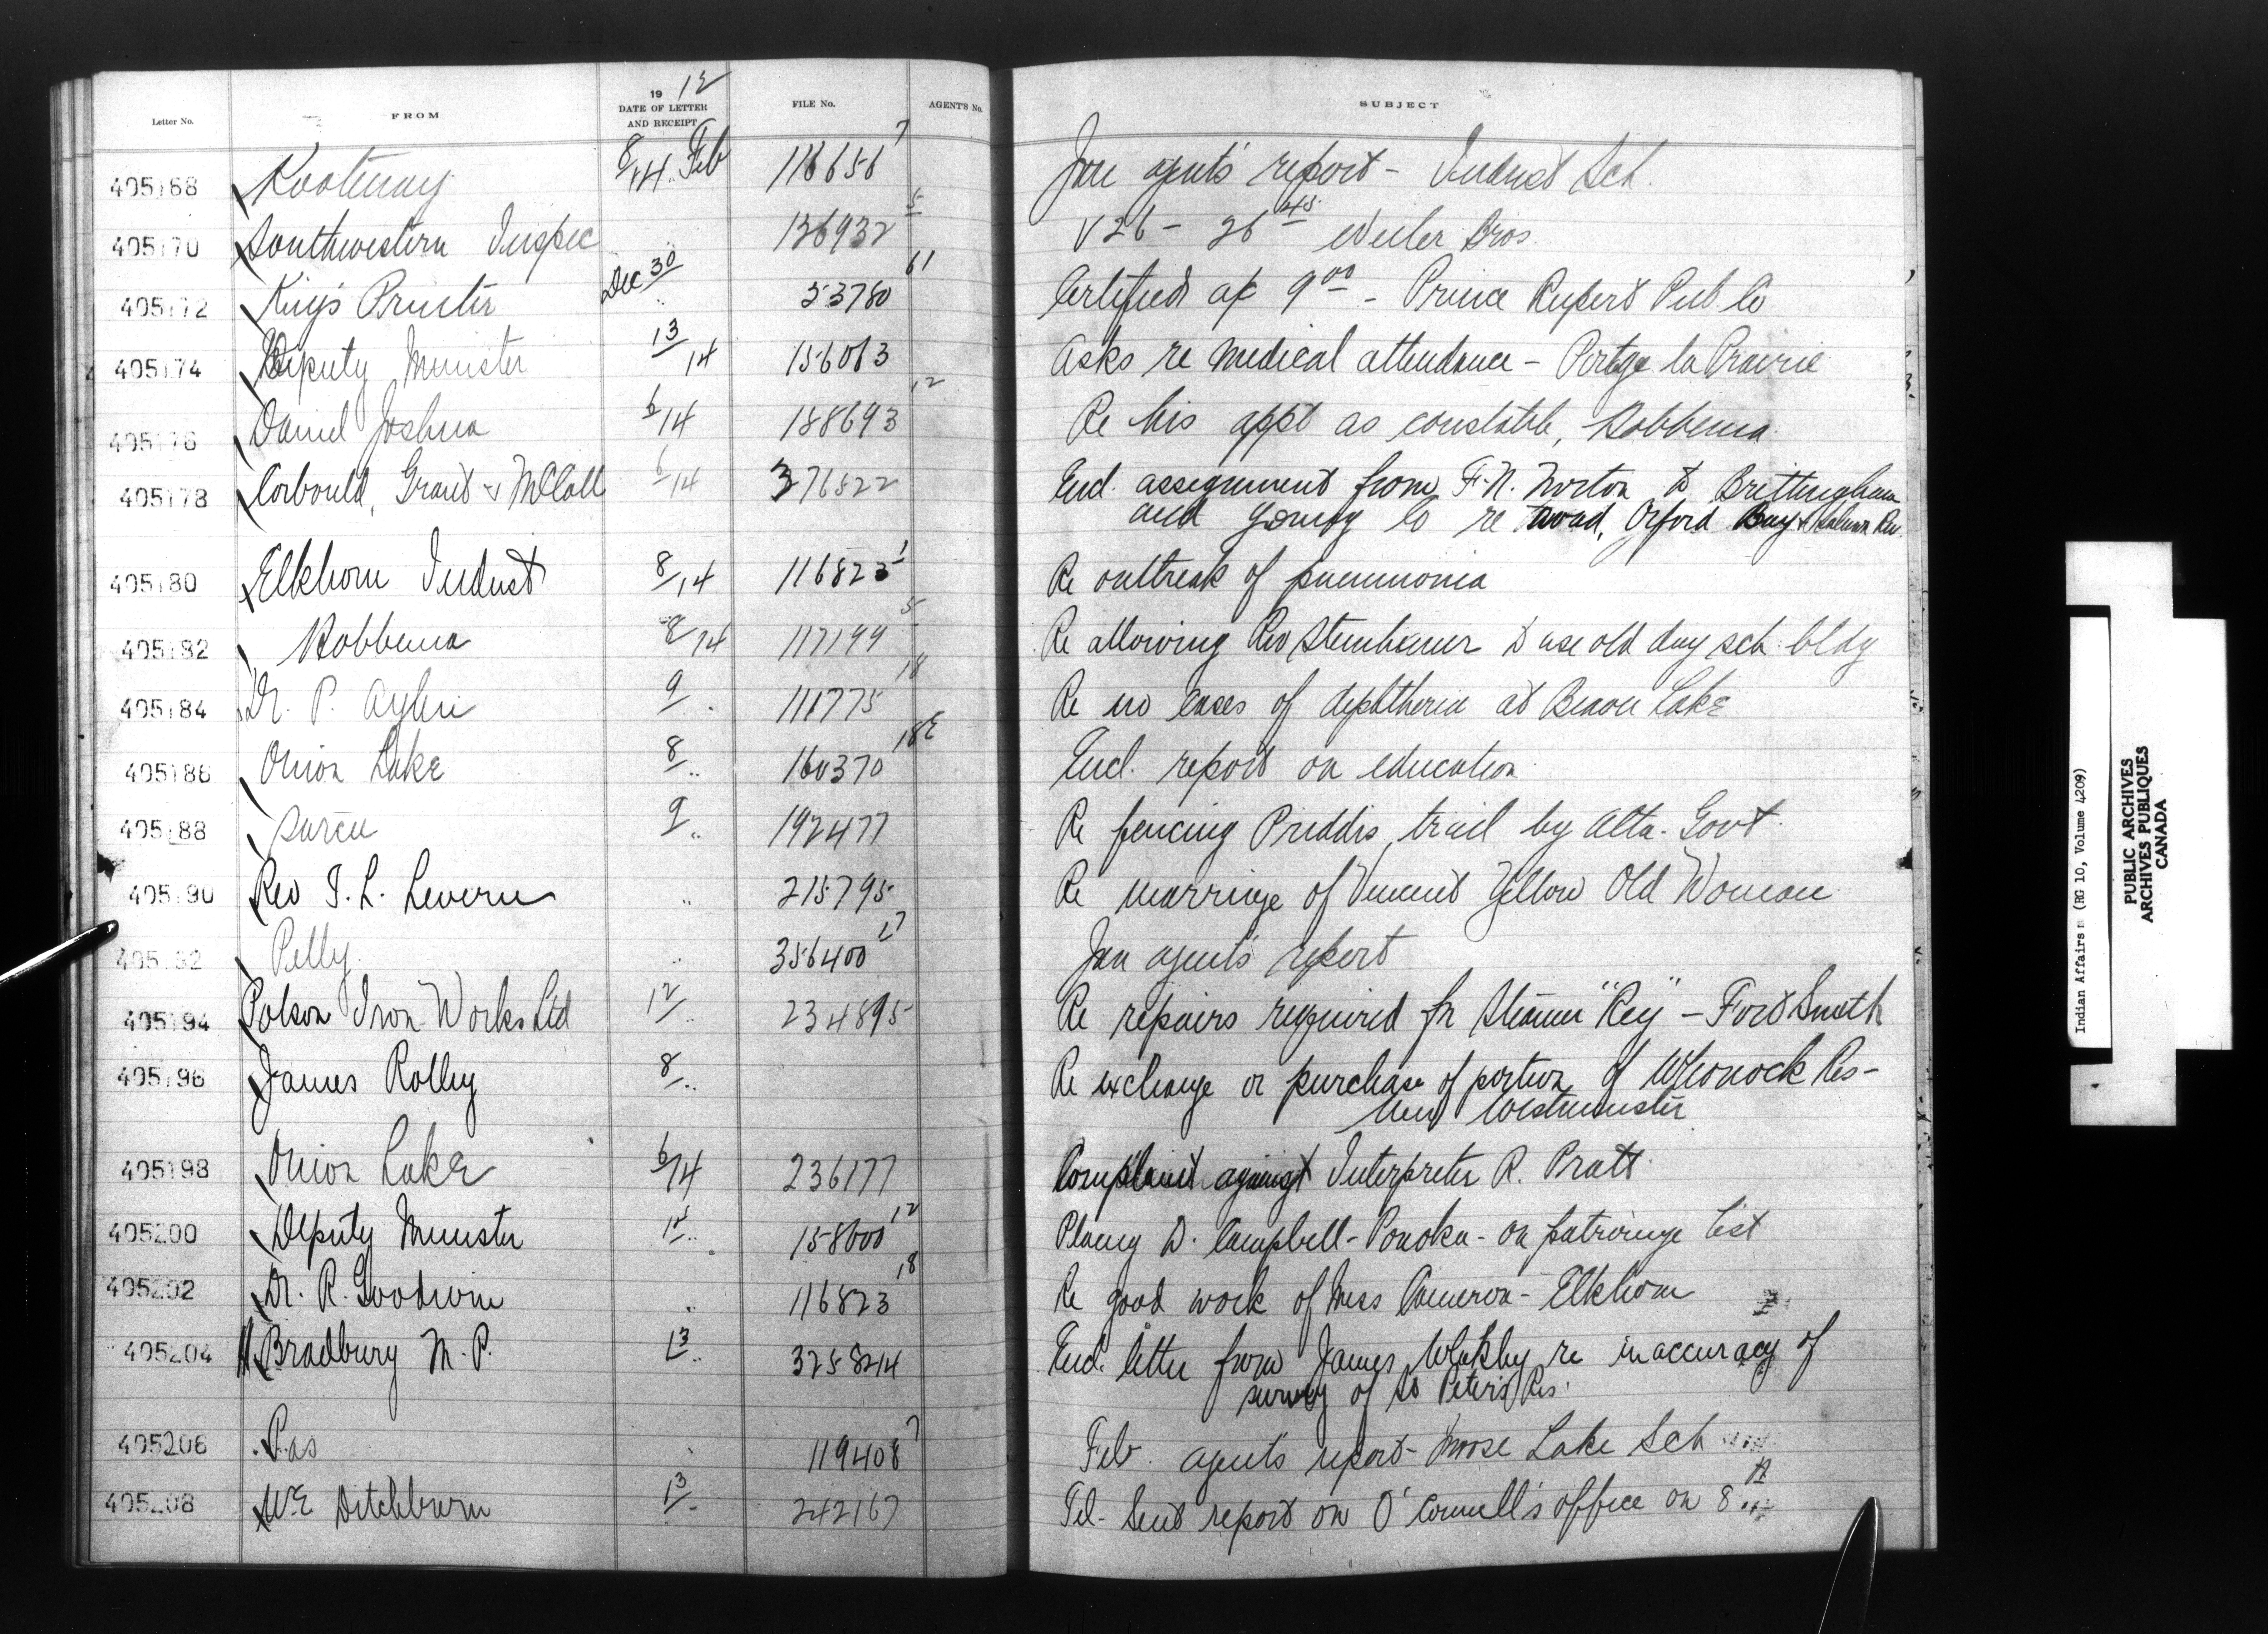 Letter No. FROM 19 12 DATE OF LETTER AND RECEIPT FILE No. AGENT'S No. SUBJECT
405168 Kootenay 8/14 Feb 116656 7 Jan agent's report - Indust Sch.
405170 Southwestern Inspec .. 136932 5 V 26 - 26 45 Weiler Bros.
405172 King's Printer Dec 30 .. 53780 61 Certified a/c 9 00 - Prince Rupert Pub. Co
405174 Deputy Minister 13/14 156063 Asks re medical attendance - Portage la Prairie
405176 Daniel Joshua 6/14 188693 12 Re his appt as constable, Hobbema
405178 Corbould, Grant & McColl 6/14 376822 Encl. assignment from F.N. Norton to Brittingham
and Young Co re Orford Bay &
405180 Elkhorn Indust 8/14 116823 1 Re outbreak of pneumonia
405182 Hobbema 8/14 117199 5 Re allowing Rev Steinhauer to use old day sch. bldg
405184 Dr. P. Aylen 9 . 111775 18 Re no cases of diphtheria at Beaver Lake
405186 Onion Lake 8/.. 160370 18E Encl. report on education
405188 Sarcee 9 .. 192477 Re fencing Priddis trail by Alta. Govt.
405190 Rev J. L. Levern .. 215795 Re marriage of Vincent Yellow Old Woman
405192 Pelly .. 356400 27 Jan agent's report
405194 Polson Iron Works Ltd 12/.. 234895 Re repairs required for Steamer "Rey" - Fort Smith
405196 James Rolley 8/.. Re exchange or purchase of portion of Whonock Res -
New Westminster
405198 Onion Lake 6/14 236177 Complaint against Interpreter R. Pratt
405200 Deputy Minister 12 .. 158000 12 Placing D. Campbell - Ponoka - on patronage list
405202 Dr. R. Goodwin .. 116823 18 Re good work of Miss Cameron - Elkhorn
405204 H Bradbury M.P. 13 .. 325824 Encl. letter from James re inaccuracy of
survey of St Peter's Res.
405206 Pas . 119408 7 Feb. agent's report - Moose Lake Sch
405208 W.E. Ditchburn 13/- 242167 Tel - Sent report on O'Connell's office on 8
Indian Affairs (RG 10, Volume 4209)
PUBLIC ARCHIVES
ARCHIVES PUBLIQUES
CANADA